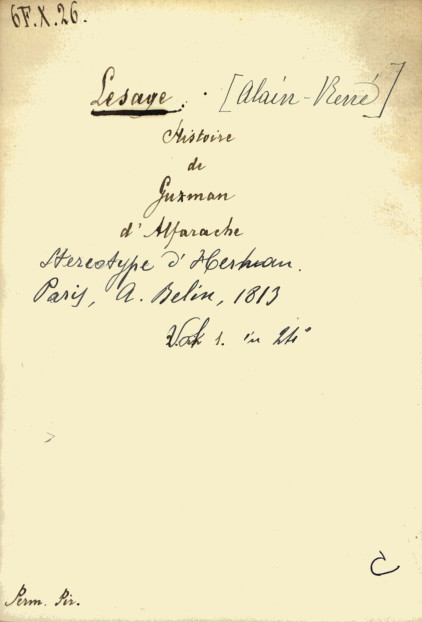 6F.X.26.
Lesage. [Alain-René]
Histoire
de
Guzman
d'Alfarache
Stereotype d'Herhan.
Paris, A. Belin, 1813
1. in 24°
C
Perm. Pir.